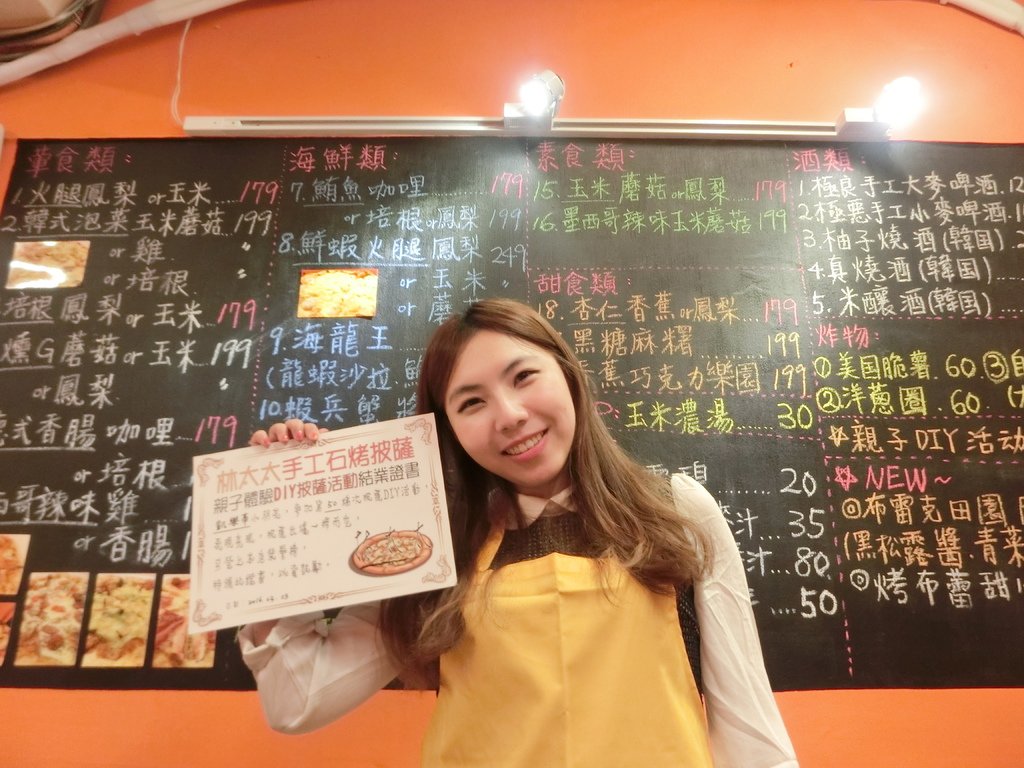 葷食類:
1.火腿鳳梨or玉米......179
2.韓式泡菜玉米蘑菇199
or雞
or培根
培根鳳梨or玉米...179
燻G蘑菇or玉米..199
or鳳梨
德式香腸咖哩......179
or培根
哥辣味雞
or香腸
海鮮類:
7.鮪魚咖哩.........179
or培根or鳳梨 199
8.鮮蝦火腿鳳梨 249
or玉米
or蘑
9.海龍王
(龍蝦沙拉.
10.蝦兵蟹將
素食類:
15.玉米蘑菇or鳳梨...179
16.墨西哥辣味玉米蘑菇199
甜食類:
18.杏仁香蕉or鳳梨...179
黑糖麻糬......199
蕉巧克力樂園199
玉米濃湯......30
20
汁...35
汁...80
....50
酒類:
1.極良手工大麥啤酒.
2.極惡手工小麥啤酒.
3.柚子燒酒(韓国)
4.真燒酒(韓国)
5.米釀酒(韓国)
炸物:
①美国脆薯.60 ③
②洋蔥圈.60
親子DIY活动
NEW~
布雷克田園
(黑松露醬青菜
烤布蕾甜
林太太手工石烤披薩
親子體驗DIY披薩活動結業證書
小朋友,參加第50梯次披薩DIY活動,
特頒此證書,以資鼓勵。